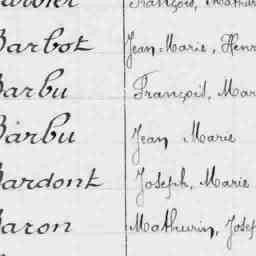 Barbot Jean Marie, Henr
Barbu François, Mar
Barbu Jean Marie
Bardont Joseph, Marie
Baron Mathurin, Josep